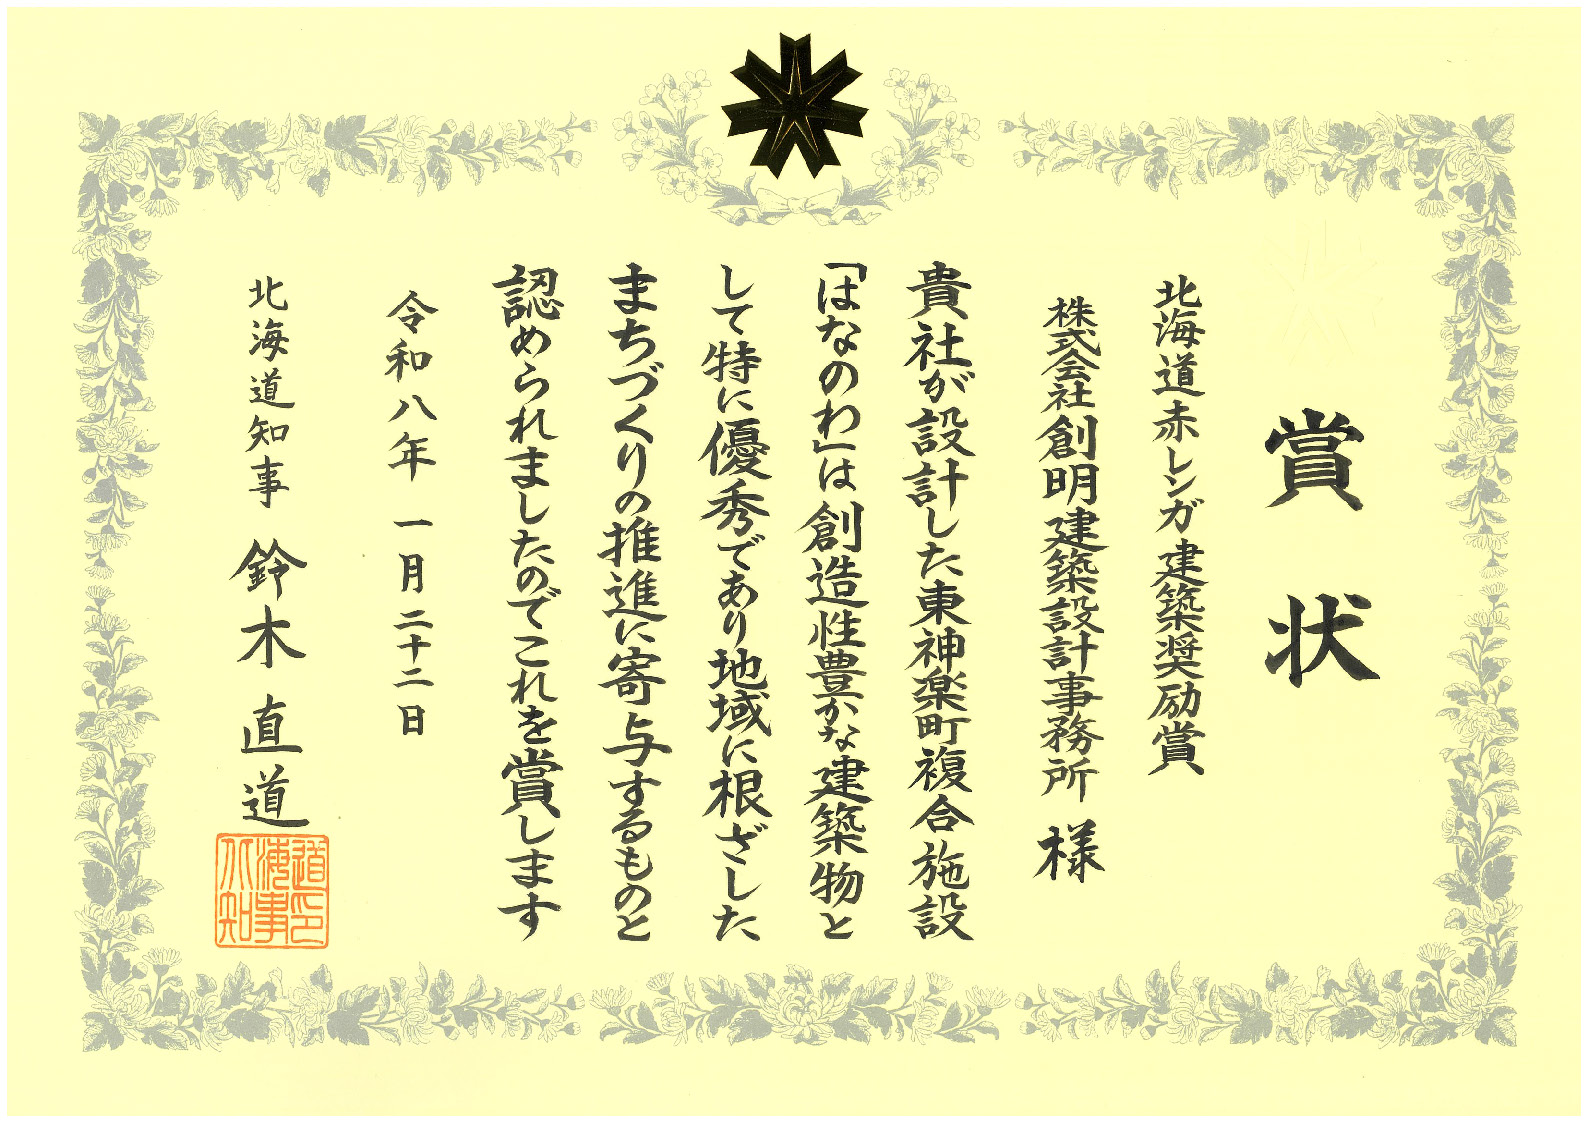 賞状
北海道赤レンガ建築奨励賞
株式会社創明建築設計事務所 様
貴社が設計した東神楽町複合施設
「はなのわ」は創造性豊かな建築物と
して特に優秀であり地域に根ざした
まちづくりの推進に寄与するものと
認められましたのでこれを賞します
令和八年一月二十二日
北海道知事 鈴木直道
北海道知事印